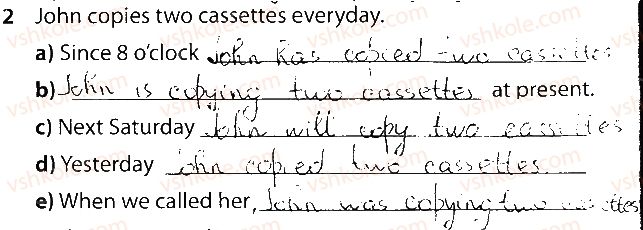 2 John copies two cassettes everyday.
a) Since 8 o'clock John has copied two cassettes
b) John is copying two cassettes at present.
c) Next Saturday John will copy two cassettes
d) Yesterday John copied two cassettes
e) When we called her, John was copying two cassettes